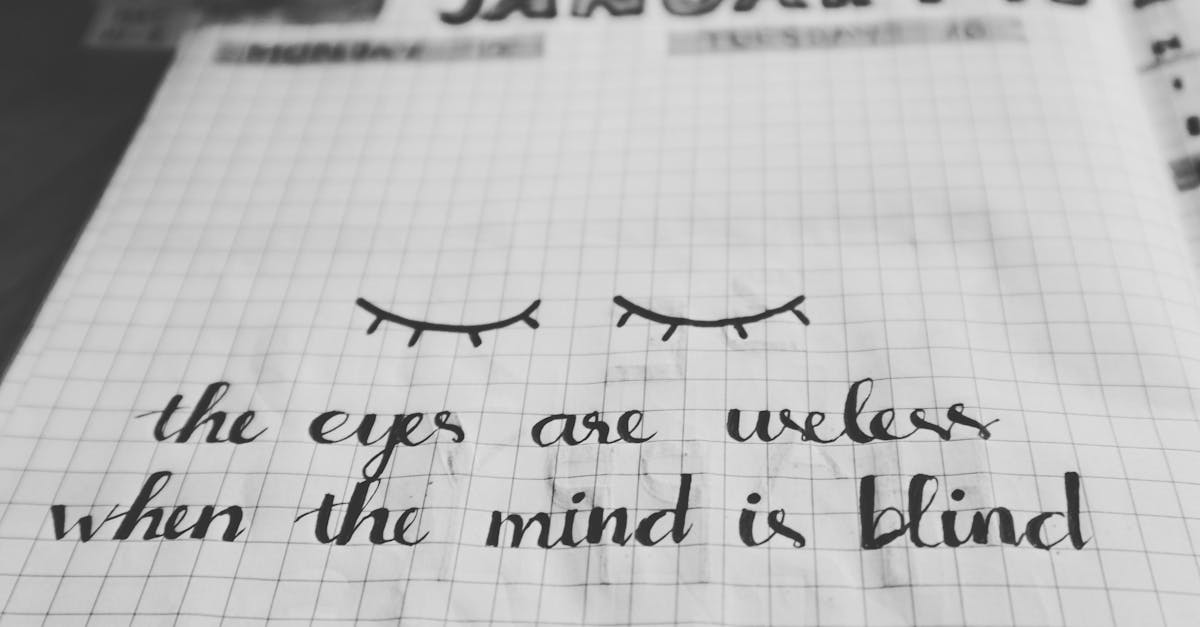 JANUARY
MONDAY
TUESDAY
the eyes are useless
when the mind is blind